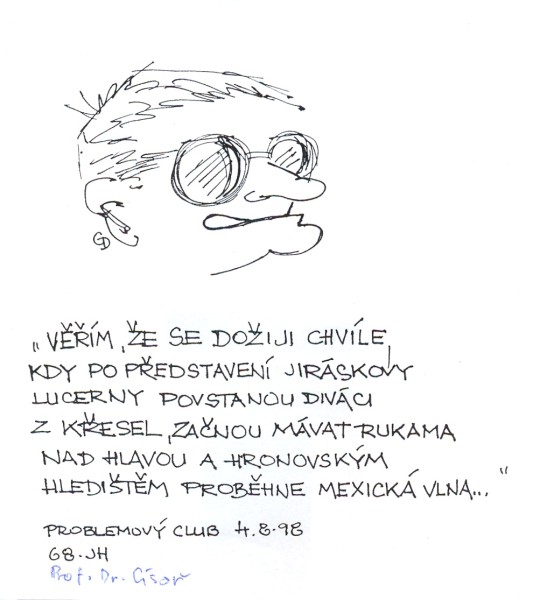 „VĚŘÍM, ŽE SE DOŽIJI CHVÍLE,
KDY PO PŘEDSTAVENÍ JIRÁSKOVY
LUCERNY POVSTANOU DIVÁCI
Z KŘESEL, ZAČNOU MÁVAT RUKAMA
NAD HLAVOU A HRONOVSKÝM
HLEDIŠTĚM PROBĚHNE MEXICKÁ VLNA..."
PROBLEMOVÝ CLUB 4.8.98
68.JH
Prof. Dr. Císař